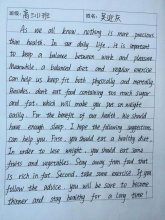 高三11班 姓名:
As we all know, nothing is more precious
than health. In our daily life, it is important
to keep a balance between work and pleasure.
Meanwhile a balanced diet and regular exercise
can help us keep fit both physically and mentally.
Besides, don't eat food containing too much sugar
and fat, which will make you put on weight
easily. For the benefit of our health. We should
have enough sleep. I hope the following suggestions
can help you. First, you should eat a healthy diet.
In order to lose weight, you should eat some
fruits and vegetables. Stay away from food that
is rich in fat. Second, take some exercise. If you
follow the advice, you will be sure to become
thinner and stay healthy for a long time!